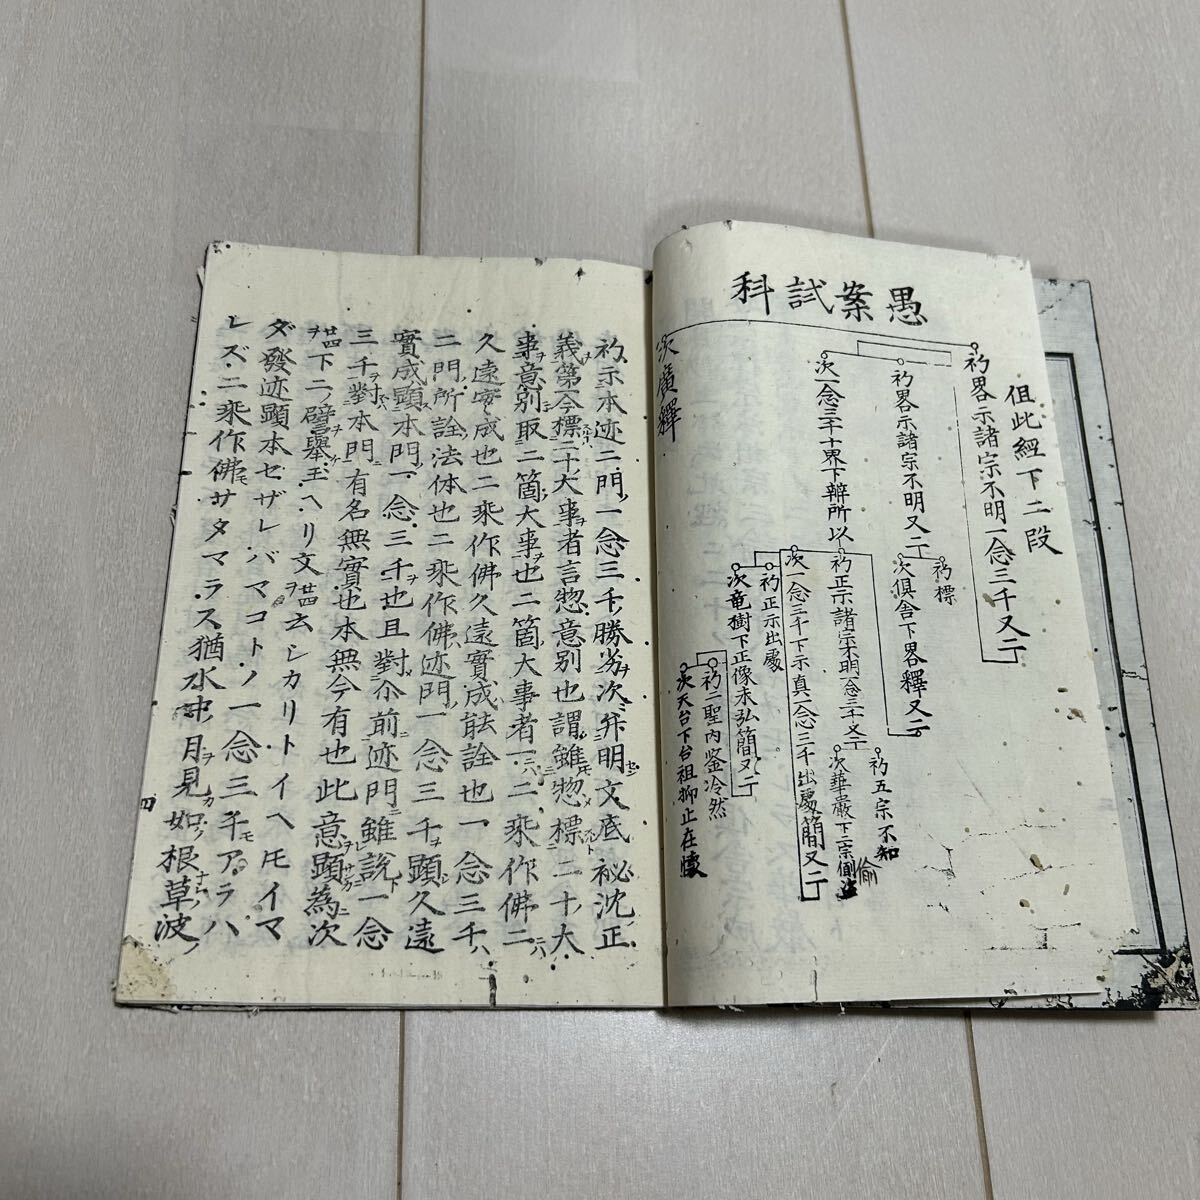 愚案試科
但此經下二段
初畧示諸宗不明一念三千又二
初畧示諸宗不明又二
初標
次俱舎下畧釋又二
初五宗不知
次華嚴下二宗偷盗
次一念三千十界下辨所以
初正示諸宗不明一念三千又二
次一念三千下示真一念三千出處簡又二
初正示出處
次竜樹下正像未弘簡又二
初二聖内鉴冷然
次天台下台祖抑止在懐
次廣釋
初示本迹二門一念三千勝劣次ニ弁明文底祕沈正
義第今標二十大事者言惣意別也謂雖惣標二十大
事意別取二箇大事也二箇大事者一二乘作佛二
久遠實成也二乘作佛久遠實成能詮也一念三千ハ
二門所詮法体也二乘作佛迹門一念三千顕久遠
實成顕本門一念三千也且對尒前迹門雖説一念
三千對本門有名無實也本無今有也此意顕為次
下二譬舉玉ヘリ文云シカリトイヘモイマ
ダ發迹顕本セザレバマコトノ一念三千モアラハ
レズ二乘作佛モサタマラス猶水中月見如根草波
四